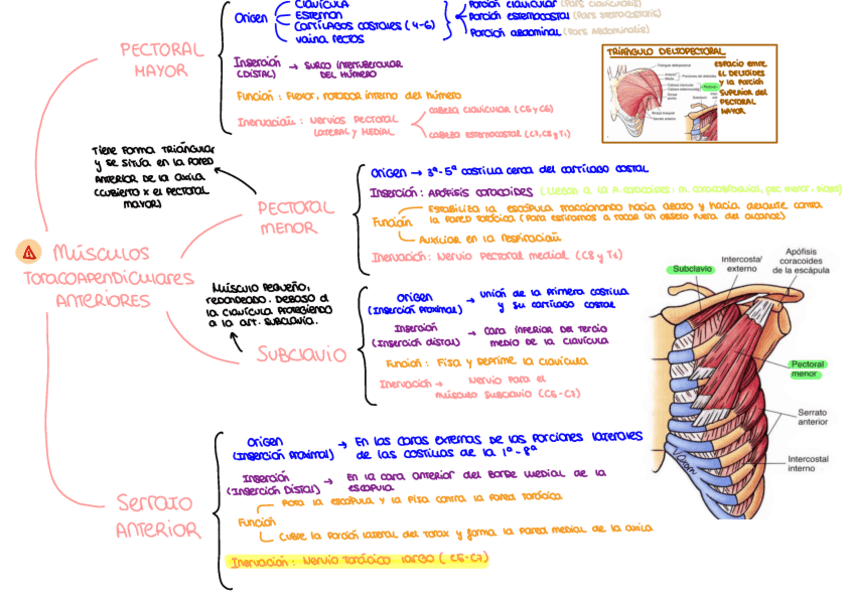 CLAVÍCULA
Origen
ESTERNÓN
CARTÍLAGOS COSTALES (4-6)
VAINA RECTOS
Porción clavicular (Pars clavicularis)
Porción esternocostal
Porción abdominal (Pars Abdominalis)
PECTORAL
MAYOR
Inserción
(DISTAL)
→ SURCO INTERTUBERCULAR
DEL HÚMERO
Función: Flexor, rotador interno del húmero
Inervación: Nervios PECTORAL
LATERAL y MEDIAL
CABEZA CLAVICULAR (C5 y C6)
CABEZA ESTERNOCOSTAL (C7, C8 y T1)
TRIÁNGULO DELTOPECTORAL
ESPACIO ENTRE
EL DELTOIDES
y LA PORCIÓN
SUPERIOR DEL
PECTORAL
MAYOR
TIENE FORMA TRIÁNGULAR
y SE SITÚA EN LA PARED
ANTERIOR DE LA AXILA
(CUBIERTO X EL PECTORAL
MAYOR)
PECTORAL
MENOR
Origen → 3ª-5ª costilla cerca del cartílago costal
Inserción: APÓFISIS CORACOIDES
Función
Estabiliza la escápula traccionando hacia abajo y hacia delante contra
la pared torácica (Para estirarnos a tocar un objeto fuera del alcance)
Auxiliar en la respiración
Inervación: Nervio Pectoral medial (C8 y T1)
⚠ MÚSCULOS
TORACOAPENDICULARES
ANTERIORES
MÚSCULO PEQUEÑO,
REDONDEADO. DEBAJO d
LA CLAVÍCULA PROTEGIENDO
A LA ART. SUBCLAVIA.
SUBCLAVIO
Origen
(Inserción Proximal)
→ Unión de la primera costilla
y su cartílago costal
Inserción
(Inserción distal)
→ Cara inferior del tercio
medio de la clavícula
Función: Fija y deprime la clavícula
Inervación → Nervio para el
músculo subclavio (C5-C7)
Subclavio
Intercostal
externo
Apófisis
coracoides
de la escápula
Pectoral
menor
Serrato
anterior
Intercostal
interno
SERRATO
ANTERIOR
Origen
(Inserción Proximal)
→ En las caras externas de las porciones laterales
de las costillas de la 1ª-8ª
Inserción
(Inserción Distal)
→ En la cara anterior del borde medial de la
escápula
Función
Rota la escápula y la fija contra la pared torácica
Cubre la porción lateral del torax y forma la pared medial de la axila
Inervación: Nervio Torácico largo (C5-C7)